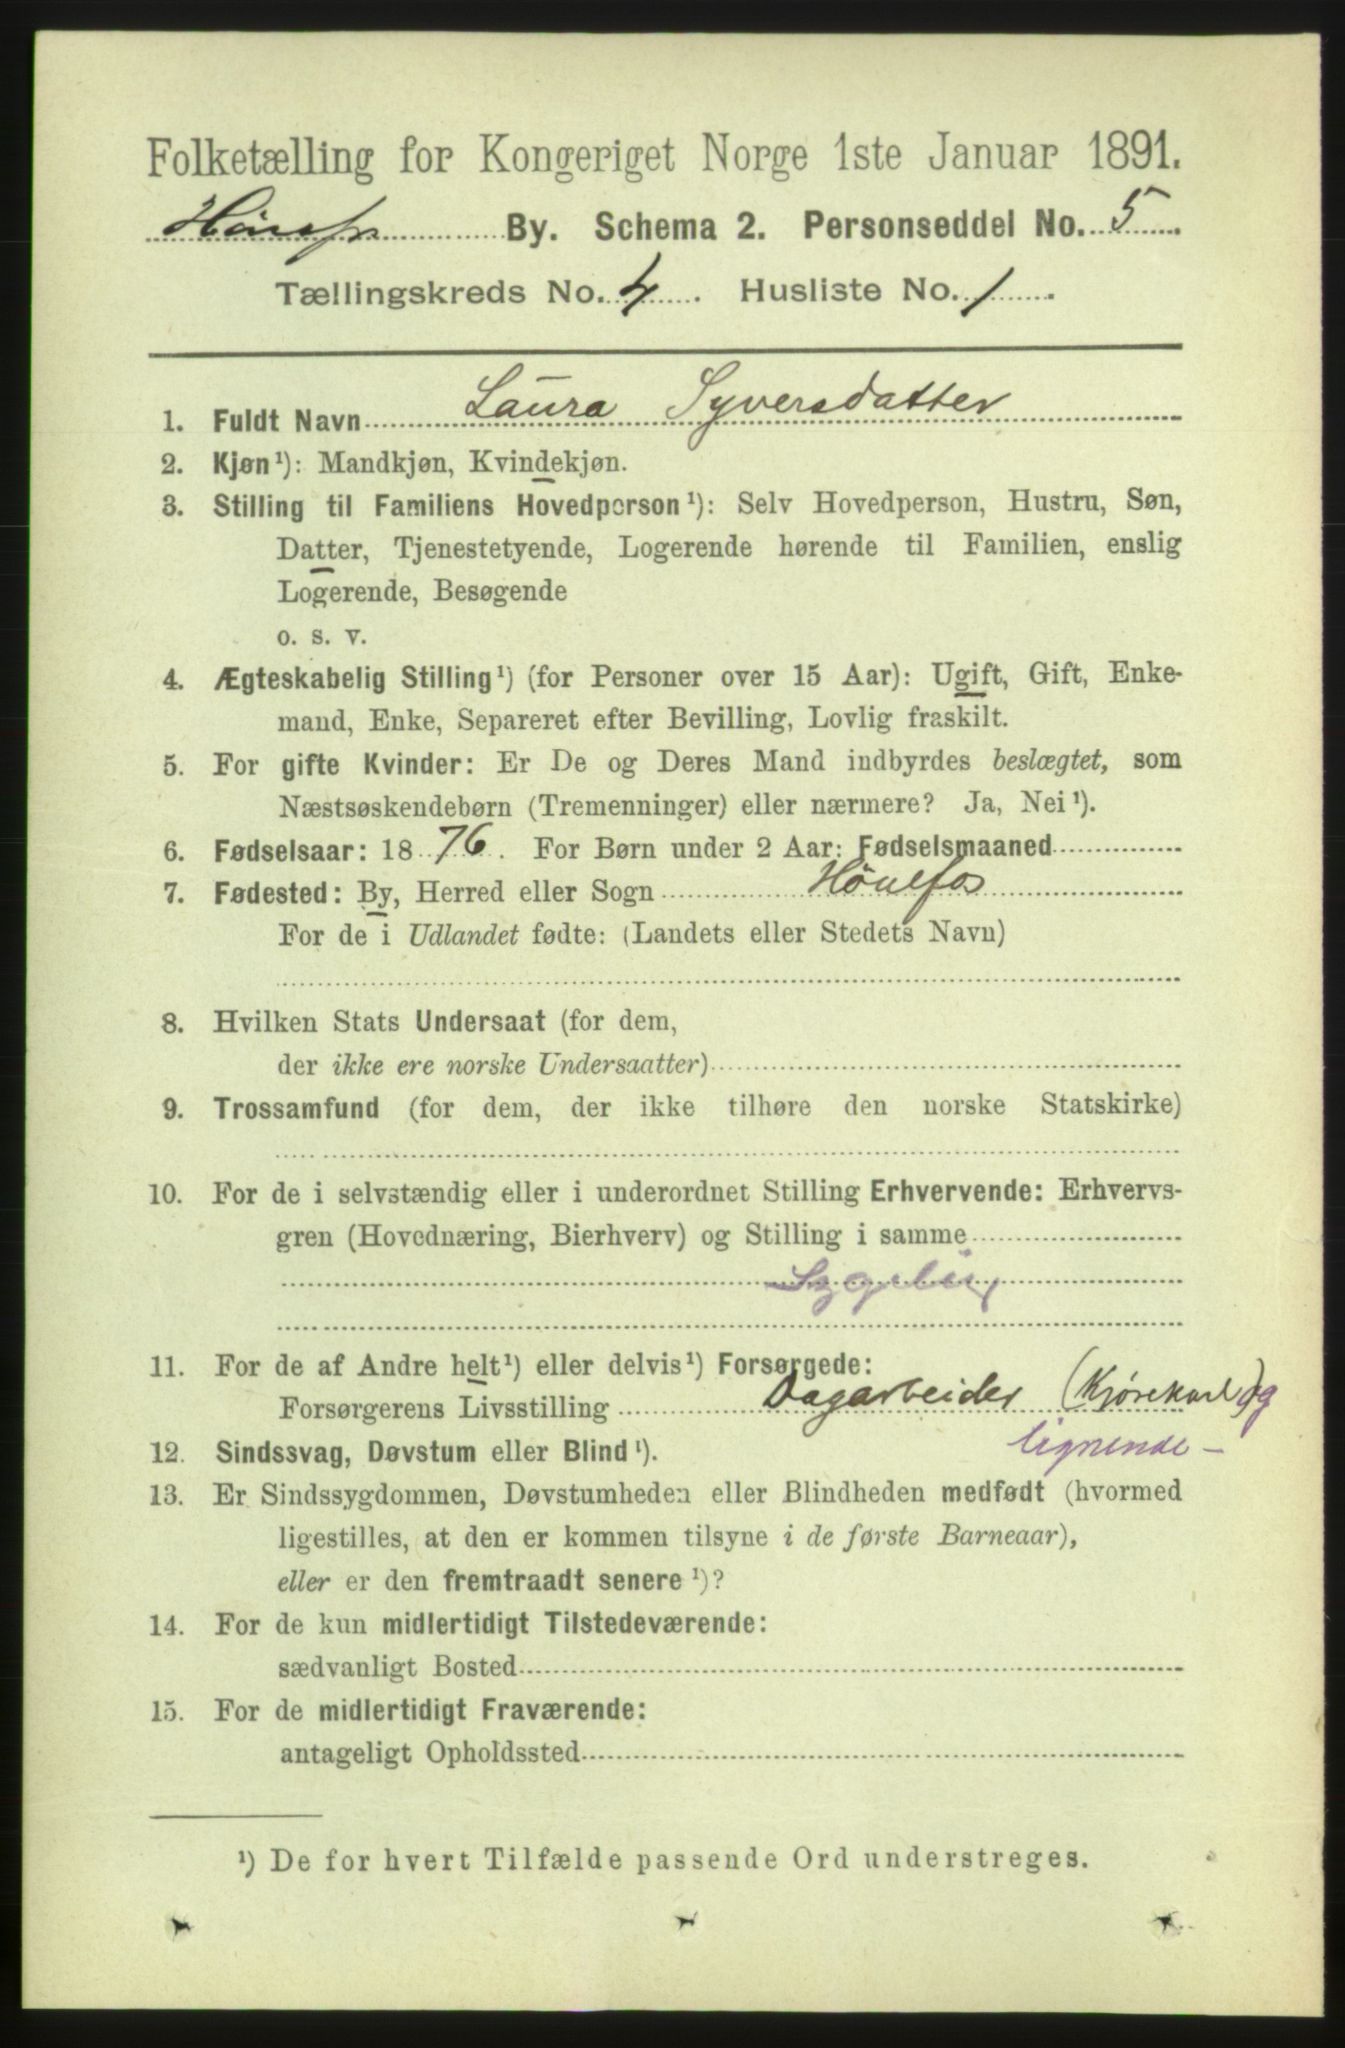 Folketælling for Kongeriget Norge 1ste Januar 1891.
Hønefos By. Schema 2. Personseddel No. 5
Tællingskreds No. 4. Husliste No. 1.
1. Fuldt Navn Laura Syversdatter
2. Kjøn¹): Mandkjøn, Kvindekjøn.
3. Stilling til Familiens Hovedperson¹): Selv Hovedperson, Hustru, Søn,
Datter, Tjenestetyende, Logerende hørende til Familien, enslig
Logerende, Besøgende
o. s. v.
4. Ægteskabelig Stilling¹) (for Personer over 15 Aar): Ugift, Gift, Enke-
mand, Enke, Separeret efter Bevilling, Lovlig fraskilt.
5. For gifte Kvinder: Er De og Deres Mand indbyrdes beslægtet, som
Næstsøskendebørn (Tremenninger) eller nærmere? Ja, Nei¹).
6. Fødselsaar: 1876. For Børn under 2 Aar: Fødselsmaaned
7. Fødested: By, Herred eller Sogn Hønefos
For de i Udlandet fødte: (Landets eller Stedets Navn)
8. Hvilken Stats Undersaat (for dem,
der ikke ere norske Undersaatter)
9. Trossamfund (for dem, der ikke tilhøre den norske Statskirke)
10. For de i selvstændig eller i underordnet Stilling Erhvervende: Erhvervs-
gren (Hovednæring, Bierhverv) og Stilling i samme
Sygelig
11. For de af Andre helt¹) eller delvis¹) Forsørgede:
Forsørgerens Livsstilling Dagarbeider (Kjørekarl) og
lignende -
12. Sindssvag, Døvstum eller Blind¹).
13. Er Sindssygdommen, Døvstumheden eller Blindheden medfødt (hvormed
ligestilles, at den er kommen tilsyne i de første Barneaar),
eller er den fremtraadt senere¹)?
14. For de kun midlertidigt Tilstedeværende:
sædvanligt Bosted
15. For de midlertidigt Fraværende:
antageligt Opholdssted
¹) De for hvert Tilfælde passende Ord understreges.